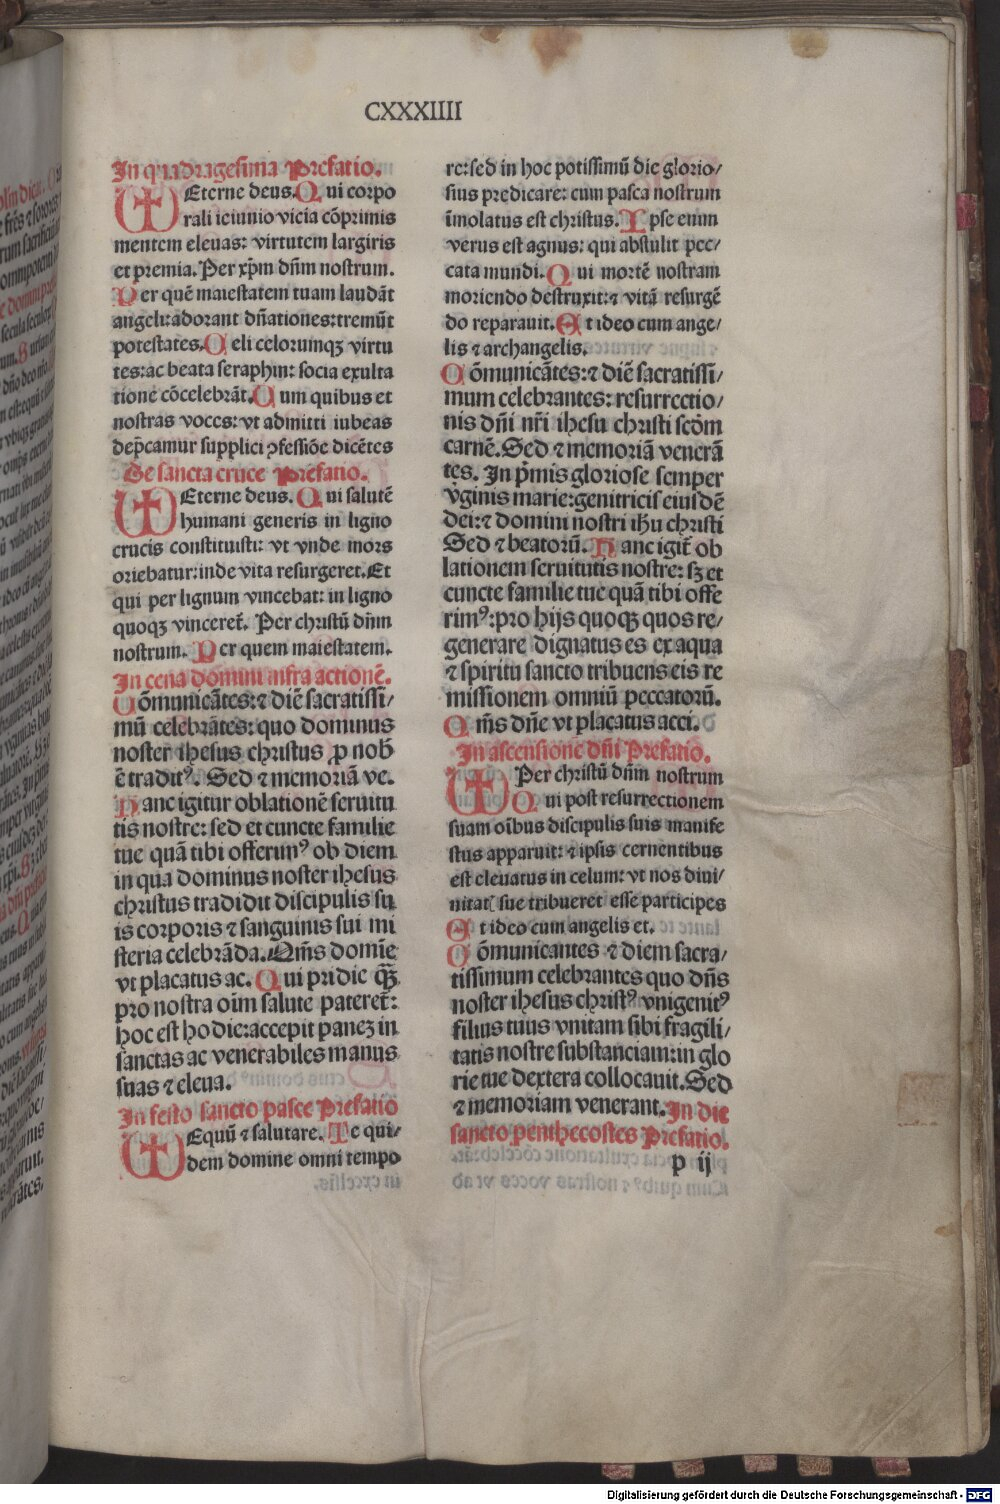 CXXXIIII
In quadragesima Prefatio.
Eterne deus. Qui corpo
rali ieiunio vicia cōprimis
mentem eleuas: virtutem largiris
et premia. Per xp̄m dn̄m nostrum.
Per quē maiestatem tuam laudāt
angeli: adorant dn̄ationes: tremūt
potestates. Celi celorumqꝫ virtu
tes: ac beata seraphin: socia exulta
tione cōcelebrāt. Cum quibus et
nostras voces: vt admitti iubeas
dep̄camur supplici ꝯfessiōe dicētes
De sancta cruce Prefatio.
Eterne deus. Qui salutē
humani generis in ligno
crucis constituisti: vt vnde mors
oriebatur: inde vita resurgeret. Et
qui per lignum vincebat: in ligno
quoqꝫ vinceret̄. Per christū dn̄m
nostrum. Per quem maiestatem.
In cena domini infra actionē.
Cōmunicātes: ⁊ diē sacratissi/
mū celebrātes: quo dominus
noster ihesus christus ꝓ nob̄
ē tradit᷒. Sed ⁊ memoriā ve.
Hanc igitur oblationē seruitu
tis nostre: sed et cuncte familie
tue quā tibi offerim᷒ ob diem
in qua dominus noster ihesus
christus tradidit discipulis su
is corporis ⁊ sanguinis sui mi
steria celebrāda. Qm̄s domīe
vt placatus ac. Qui pridie qꝫ̄
pro nostra oīm salute pateret̄:
hoc est hodie: accepit paneꝫ in
sanctas ac venerabiles manus
suas ⁊ eleua.
In festo sancto pasce Prefatio
Equū ⁊ salutare. Te qui/
dem domine omni tempo
re: sed in hoc potissimū die glorio/
sius predicare: cum pasca nostrum
īmolatus est christus. Ipse enim
verus est agnus: qui abstulit pec/
cata mundi. Qui mortē nostram
moriendo destruxit: ⁊ vitā resurgē
do reparauit. Et ideo cum ange/
lis ⁊ archangelis.
Cōmunicātes: ⁊ diē sacratissi/
mum celebrantes: resurrectio/
nis dn̄i nr̄i ihesu christi scd̄m
carnē. Sed ⁊ memoriā venerā
tes. In p̄mis gloriose semper
v̄ginis marie: genitricis eiusdē
dei: ⁊ domini nostri ihu christi
Sed ⁊ beatorū. Hanc igit̄ ob
lationem seruitutis nostre: sꝫ et
cuncte familie tue quā tibi offe
rim᷒: pro hijs quoqꝫ quos re/
generare dignatus es ex aqua
⁊ spiritu sancto tribuens eis re
missionem omniū peccatorū.
Qm̄s dn̄e vt placatus acci.
In ascensione dn̄i Prefatio.
Per christū dn̄m nostrum
Qui post resurrectionem
suam oībus discipulis suis manife
stus apparuit: ⁊ ipsis cernentibus
est eleuatus in celum: vt nos diui/
nitatꝭ sue tribueret esse participes
Et ideo cum angelis et.
Cōmunicantes ⁊ diem sacra/
tissimum celebrantes quo dn̄s
noster ihesus christ᷒ vnigenit᷒
filius tuus vnitam sibi fragili/
tatis nostre substanciam: in glo
rie tue dextera collocauit. Sed
⁊ memoriam venerant. In die
sancto penthecostes Prefatio.
p ij
Digitalisierung gefördert durch die Deutsche Forschungsgemeinschaft - DFG